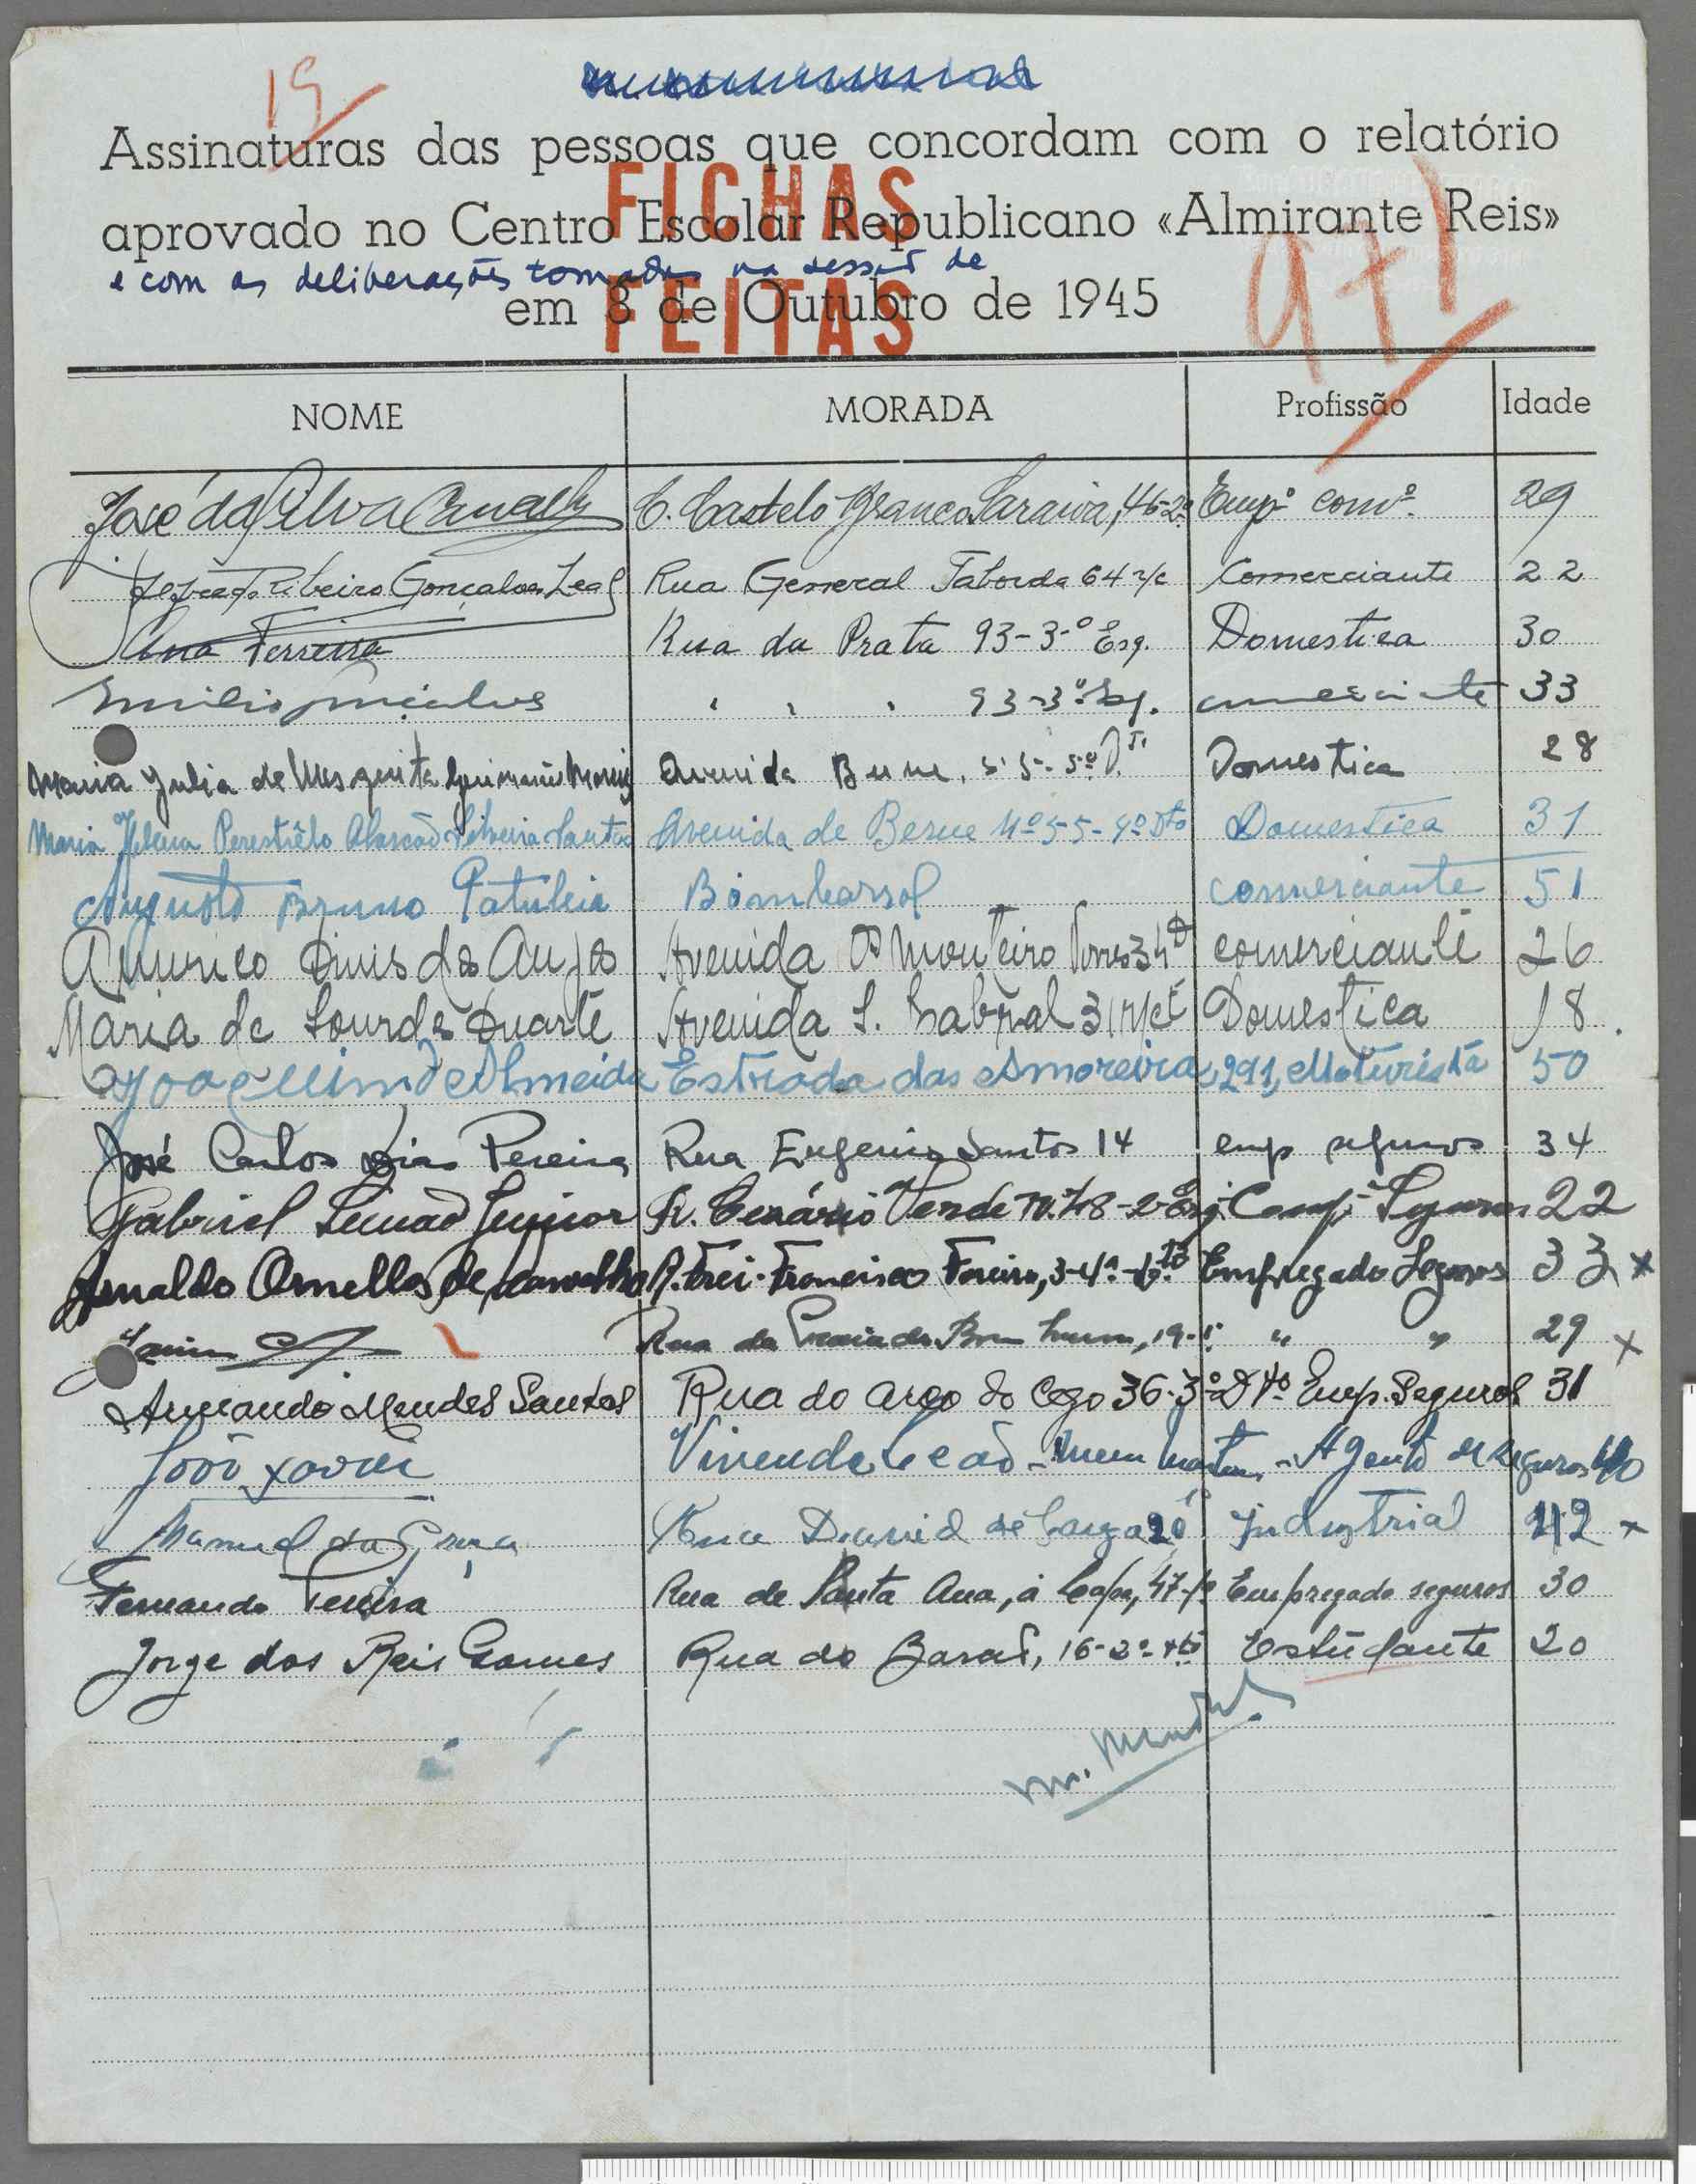 19
Assinaturas das pessoas que concordam com o relatório
FICHAS
aprovado no Centro Escolar Republicano «Almirante Reis»
971
e com as deliberações tomadas na sessão de
em 8 de Outubro de 1945
FEITAS
NOME MORADA Profissão Idade
José da Silva C. Castelo Branco Saraiva, 46-2º Empº comº. 29
Ribeiro Gonçalves Leal Rua General Taborda 64 r/c Comerciante 22
Ana Ferreira Rua da Prata 93-3-º Esq. Domestica 30
Emilio Gonçalves " " " 93-3º Esq. comerciante 33
Maria Julia de Mesquita Guimarães Avenida Berne, 55-5º D.to Domestica 28
Maria Helena Perestrêlo Alarcão Silveira Santos Avenida de Berne Nº 55-4º Dto Domestica 31
Augusto Bruno Patuleia Bombarral comerciante 51
Americo Dinis dos Anjos Avenida Monteiro Torres 34 comerciante 26
Maria de Lourdes Duarte Avenida S. Cabral 31 r/c Domestica 18.
Joaquim d'Almeida Estrada das Amoreira, 291, Moturista 50
José Carlos Dias Pereira Rua Eugenio Santos 14 emp seguros 34
Gabriel Simão Junior R. Cesário Verde 48-2º Esq. Seguros 22
Arnaldo Ornellas de Carvalho R. Frei Francisco Foreiro, 3-4º-Dto Empregado Seguros 33 x
Rua da Praia do Bom 19-1º " " 29 x
Armando Mendes Santos Rua do Arco do Cego 36-3º Dto Emp. Seguros 31
João Xavier Vivenda Leão - Mem Martins - Agente de seguros 40
Manuel da Graça Rua David de Sousa 20 Industrial 42 x
Fernando Pereira Rua de Santa Ana, á Lapa, 47 Empregado seguros 30
Jorge dos Reis Gomes Rua do Barão, 16-2º Estudante 20
M. Mendes